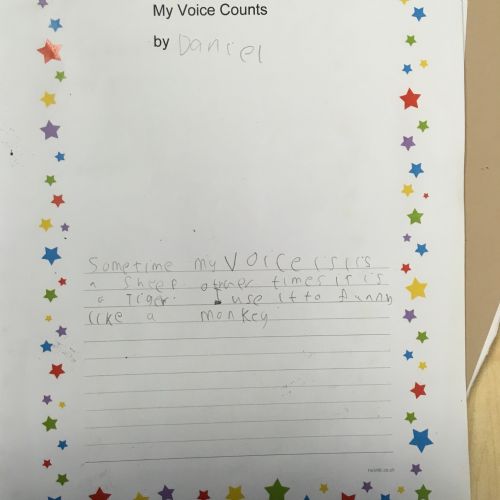 My Voice Counts
by Daniel
Sometime my VOICE is is
a Sheep other times it is
a Tiger. I use it to funny
like a monkey
twinkl.co.uk